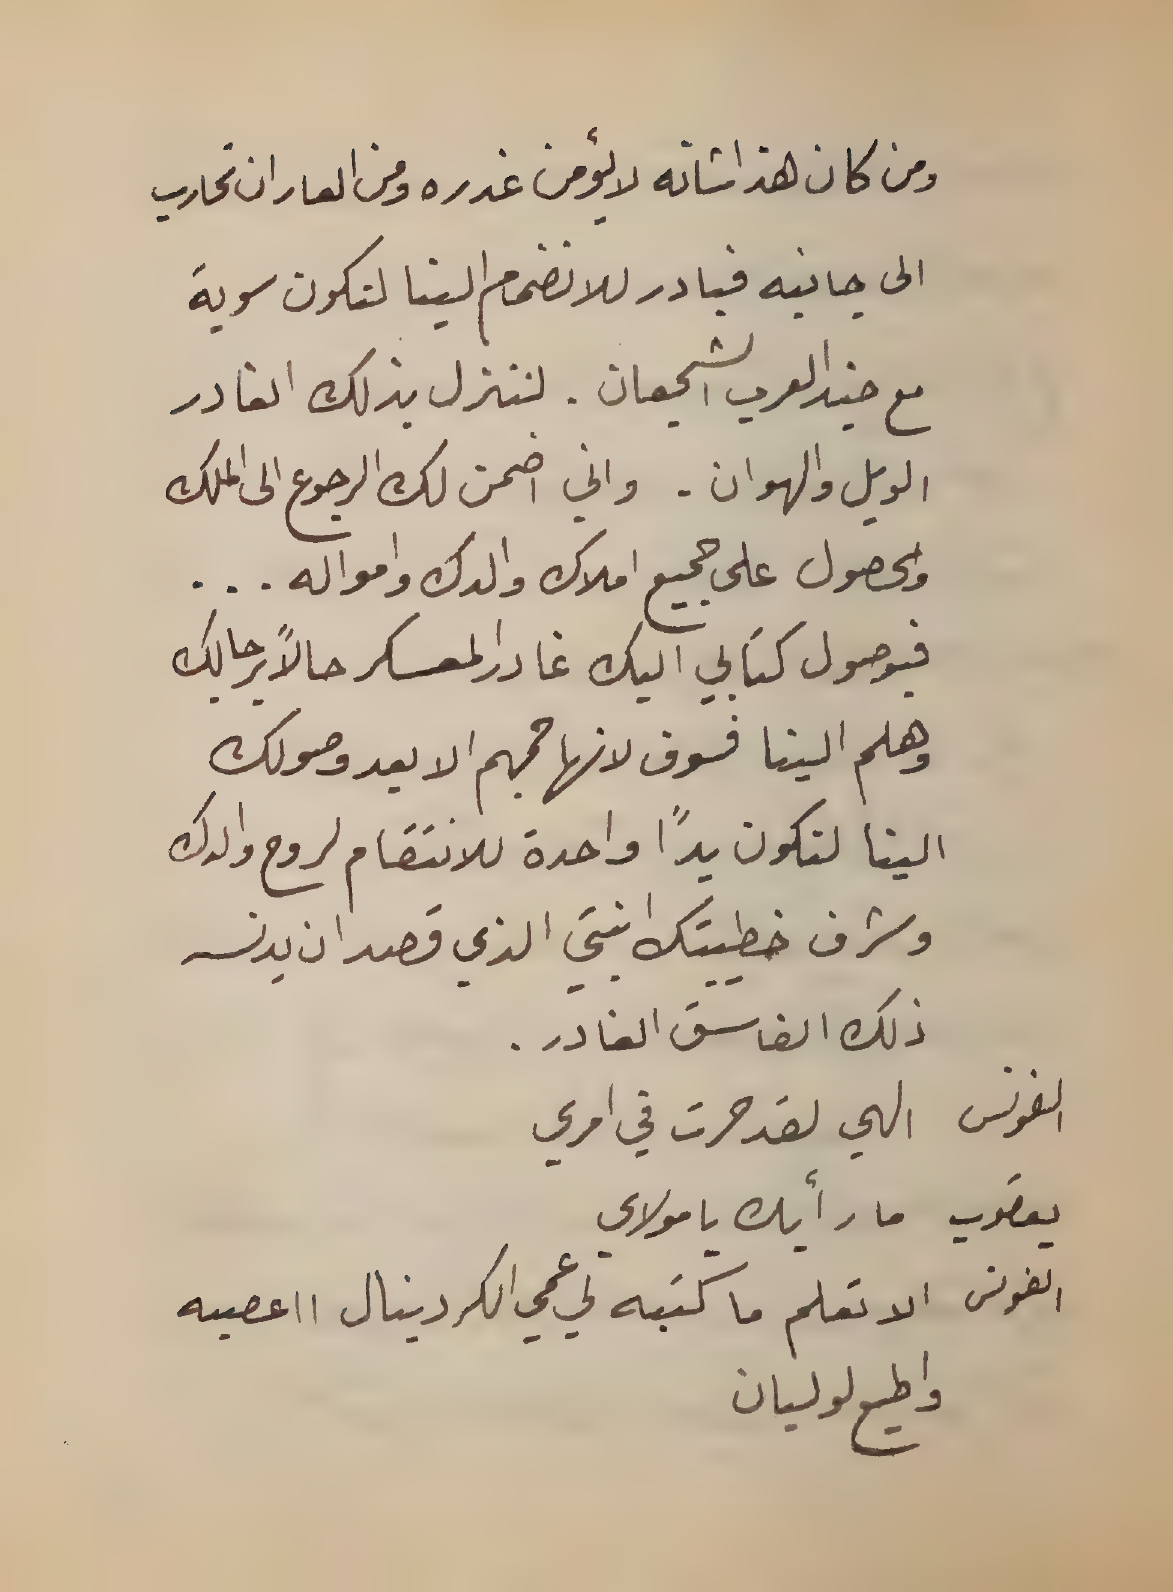 ومن كان هذا شانه لا يؤمن غدره ومن العار ان تحارب
الى جانبه فبادر للانضمام الينا لتكون سوية
مع جند العرب الشجعان . لننزل بذلك الغادر
الويل والهوان . واني اضمن لك الرجوع الى الملك
والحصول على جميع املاك والدك وامواله ...
فبوصول كتابي اليك غادر المعسكر حالاً برجالك
وهلم الينا فسوف لانهاجمهم الا بعد وصولك
الينا لتكون يدًا واحدة للانتقام لروح والدك
وشرف خطيبتك ابنتي الذي قصد ان يدنسه
ذلك الفاسق الغادر .
الفونس الهي لقد حرت في امري
يعقوب ما رأيك يا مولاي
الفونس الا تعلم ما كتبه لي عمي الكردينال ااعصيه
واطيع لوليان